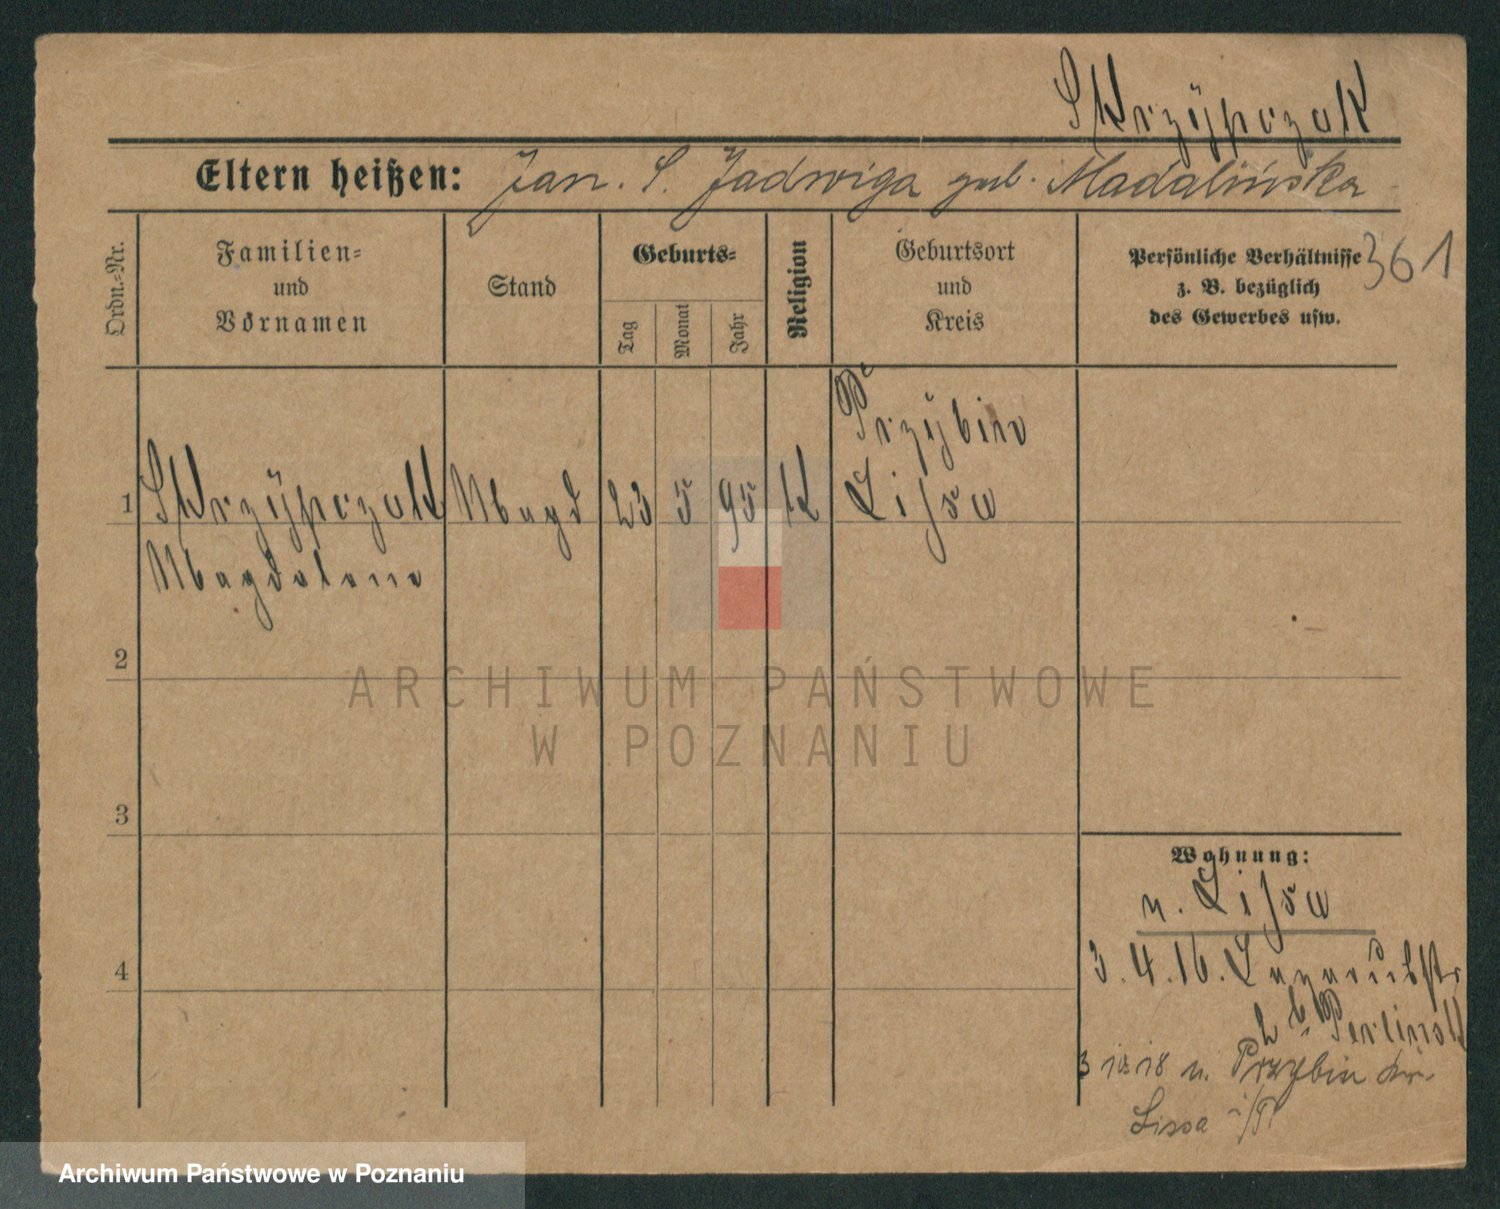 Skrzÿpczak
Eltern heißen: Jan. S. Jadwiga geb. Madalińska
Ordn.-Nr.
Familien- und Vornamen
Stand
Geburts-
Tag
Monat
Jahr
Religion
Geburtsort und Kreis
Persönliche Verhältnisse
z. B. bezüglich
des Gewerbes usw.
361
1
Skrzÿpczak
Magdalena
Magd
23
5
95
K
Przÿbin
Lissa
2
3
4
Wohnung:
n. Lissa
3.4.16.
2 b.
n. Przybin Kr.
Lissa i/P
ARCHIWUM PAŃSTWOWE
W POZNANIU
Archiwum Państwowe w Poznaniu